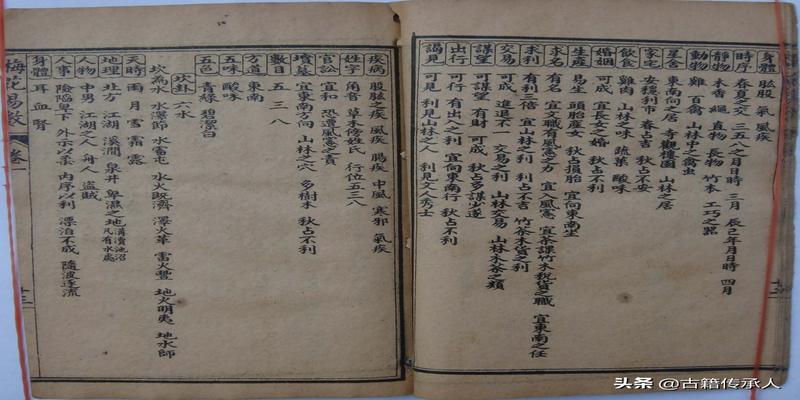 身體 肱股 氣 風疾
時序 春夏之交 三五八之月日時 三月 辰巳年月日時 四月
靜物 木香 繩 直物 長物 竹木 工巧之器
動物 雞 百禽 山林中之禽虫
星舍 東南向之居 寺觀樓園 山林之居
家宅 安穩利市 春占吉 秋占不安
飲食 雞肉 山林之味 蔬菓 酸味
婚姻 可成 宜長女之婚 秋占不利
生產 易生 頭胎產女 秋占損胎 宜向東南坐
求名 宜文職有風憲之力 宜入風憲 宜茶課竹木稅貨之職 宜東南之任
求利 有利三倍 宜山林之利 秋占不吉 竹茶木貨之利
交易 可成 進退不一 交易之利 山林交易 山林木茶之類
謀望 可謀望 有財 可成 秋占多謀少遂
出行 可行 有出入之利 宜向東南行 秋占不利
謁見 可見 利見山林之人 利見文人秀士
疾病 股肱之疾 風疾 腸疾 中風 寒邪 氣疾
姓字 角音 草木傍姓氏 行位五三八
官訟 宜和 恐遭風憲之責
墳墓 宜東南方向 山林之穴 多樹木 秋占不利
數目 五 三 八
方道 東南
五味 酸味
五色 青綠 碧潔白
坎卦 六水
坎為水 水澤節 水雷屯 水火既濟 澤火革 雷火豐 地火明夷 地水師
天時 雨 月 雪 霜 露
地理 北方 江湖 溪澗 泉井 卑濕之地 溝瀆池沼凡有水處
人物 中男 江湖之人 舟人 盜賊
人事 險陷卑下 外示以柔 內序以利 漂泊不成 隨波逐流
身體 耳 血 腎
梅花易數 卷一
十三
头条 @古籍传承人